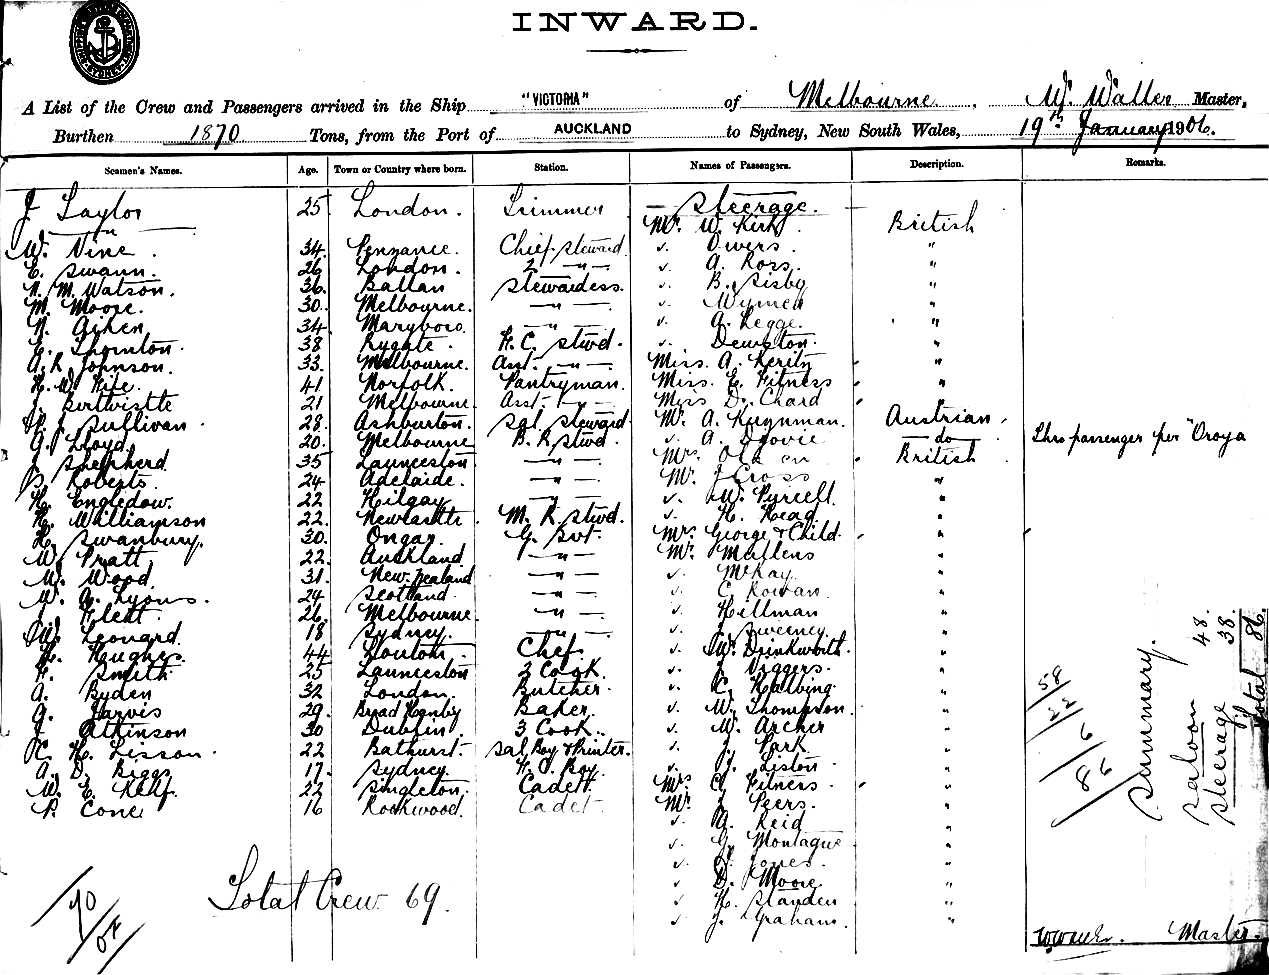 INWARD.
A List of the Crew and Passengers arrived in the Ship "VICTORIA" of Melbourne, W. Waller Master,
Burthen 1870 Tons, from the Port of AUCKLAND to Sydney, New South Wales, 19th January 1906.
Seamen's Names. Age. Town or Country where born. Station. Names of Passengers. Description. Remarks.
J Taylor 25 London. Trimmer Steerage.
Mr. W. Kirk British
W. Vine. 34 Penzance. Chief steward v. Owers. "
E. Swann. 26 London. 2 " v. A. Ross. "
N. M. Watson. 36 Ballan Stewardess. v. B. Sisby "
M. Moore. 30 Melbourne. " v. Wymen "
N. Aiken 34 Maryboro. " v. A. Legge. "
E. Thornton. 38 Rygate. F. C. Stwd. v. Dempton. "
A. R. Johnson. 33 Melbourne. Asst. " Miss. A. Verity "
H. W. Fife. 41 Norfolk. Pantryman. Miss. E. Fitness "
J. Birtwistle 21 Melbourne Asst. " Miss D. Chard "
J. Sullivan. 28 Ashburton. Sal. Steward Mr. A. Kuynman. Austrian.
G. Lloyd 20. Melbourne B. R. Stwd. v. A. do Thro passenger per "Oroya
J. Shepherd 35 Launceston " Mrs. British
B. Roberts. 24 Adelaide. " Mr. J Cross "
H. Engledow. 22 Hilgay " v. W. Purcell. "
H. Williamson 22. M. R. Stwd. v. H. Head "
H. Swanbury. 30. Ongar. G. Svt. Mrs. George & Child. "
W. Pratt 22. Auckland " Mr. Mullens "
W. Wood. 31 New Zealand " v. McKay. "
W. A. Lyons. 24 Scotland " v. C. Rowan. "
J. Flett. 26. Melbourne " v. Hillman "
W. Leonard. 18 Sydney. " v. J. Sweeney. "
H. Hughes. 44 Chef v. W. Drinkworth. "
F. Smith 25 Launceston 2 Cook v. J. Viggers. "
A. Byden 32 London. Butcher. v. C. Halbing. "
G. Jarvis 29. Broad Hembry Baker. v. W. Thompson. "
J Atkinson 30 Dublin. 3 Cook. v. W. Archer "
C. H. Lisson. 22 Bathurst. Sal. Boy & Printer. v. J. Park "
A. D. Biggs 17. Sydney. F. C. Boy. v. J. Liston "
W. E. Kelf. 22 Singleton. Cadet. Mrs. C. Fitness. "
P. Cone 16 Rookwood. Cadet. Mr. J. Peers. "
v. A. Reid "
v. G. Montague "
v. J. Jones. "
v. D. Moore "
v. H. Standen "
v. J. Graham. "
Total Crew 69.
58
22
6
86
Summary.
Saloon 48.
Steerage 38.
Total 86.
W Waller. Master.